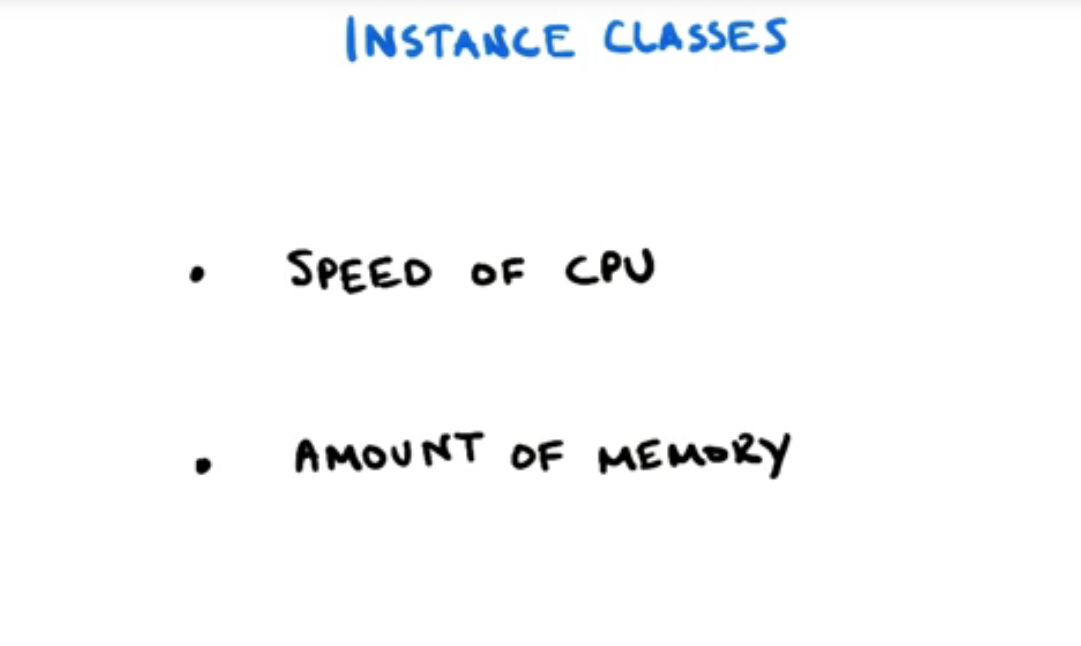 INSTANCE CLASSES
• SPEED OF CPU
• AMOUNT OF MEMORY